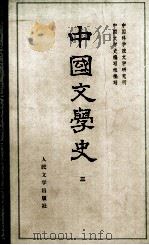 中国科学院文学研究所
中国文学史编写组编写
中國文學史
三
人民文学出版社